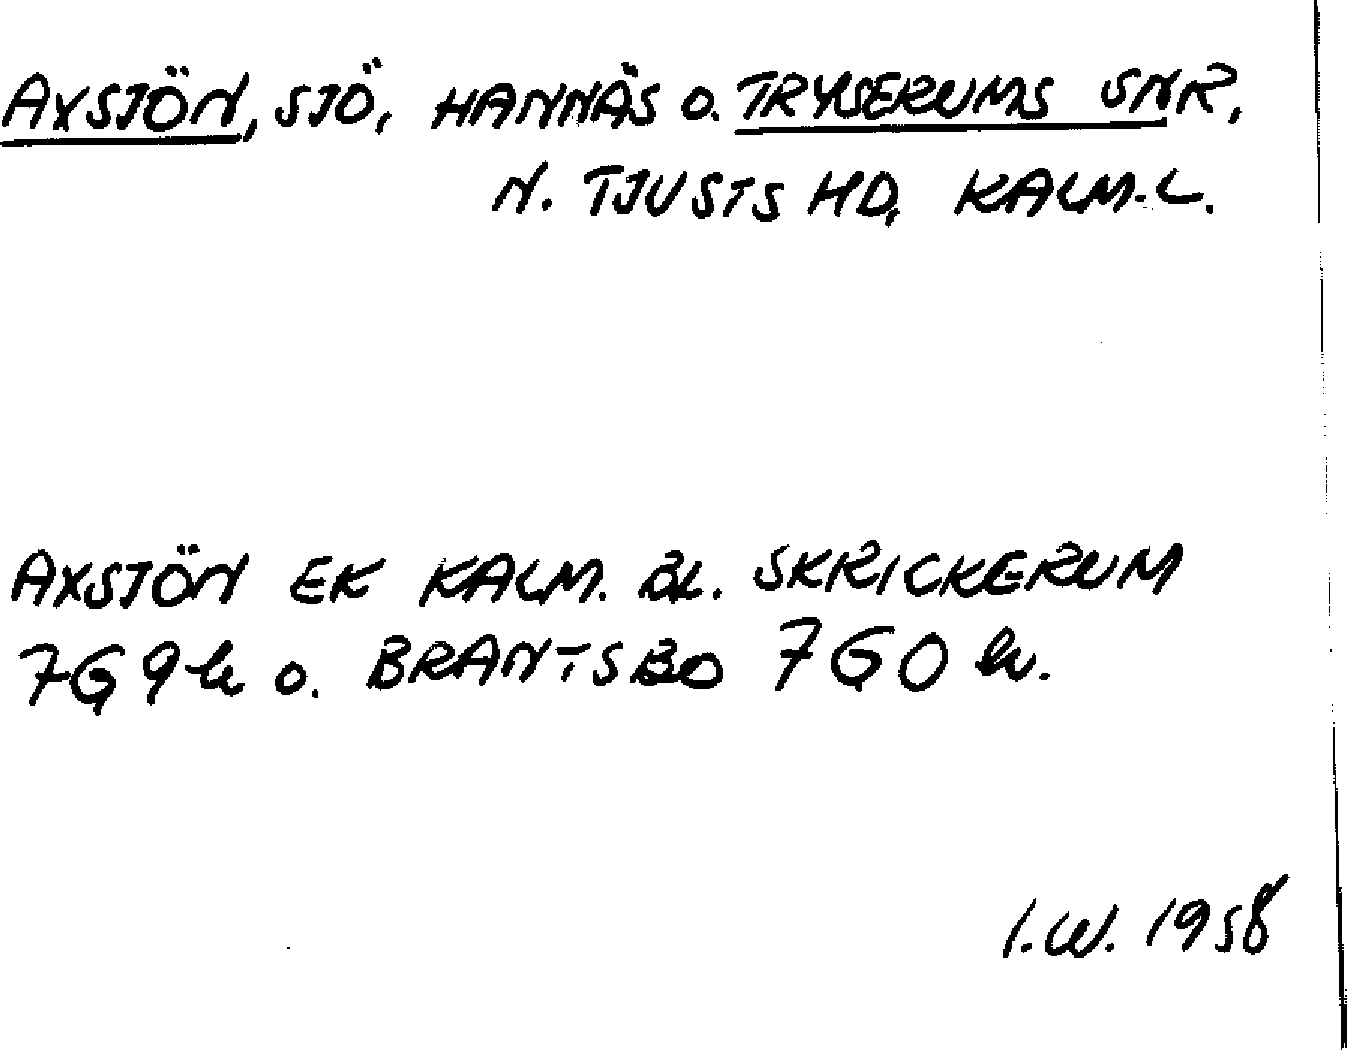 AXSJÖN, SJÖ, HANNÄS O. TRYSERUMS SNR,
N. TJUSTS HD, KALM. L.
AXSJÖN EK KALM. BL. SKRICKERUM
7G 9h O. BRANTSBO 7G0h.
I.W. 1958